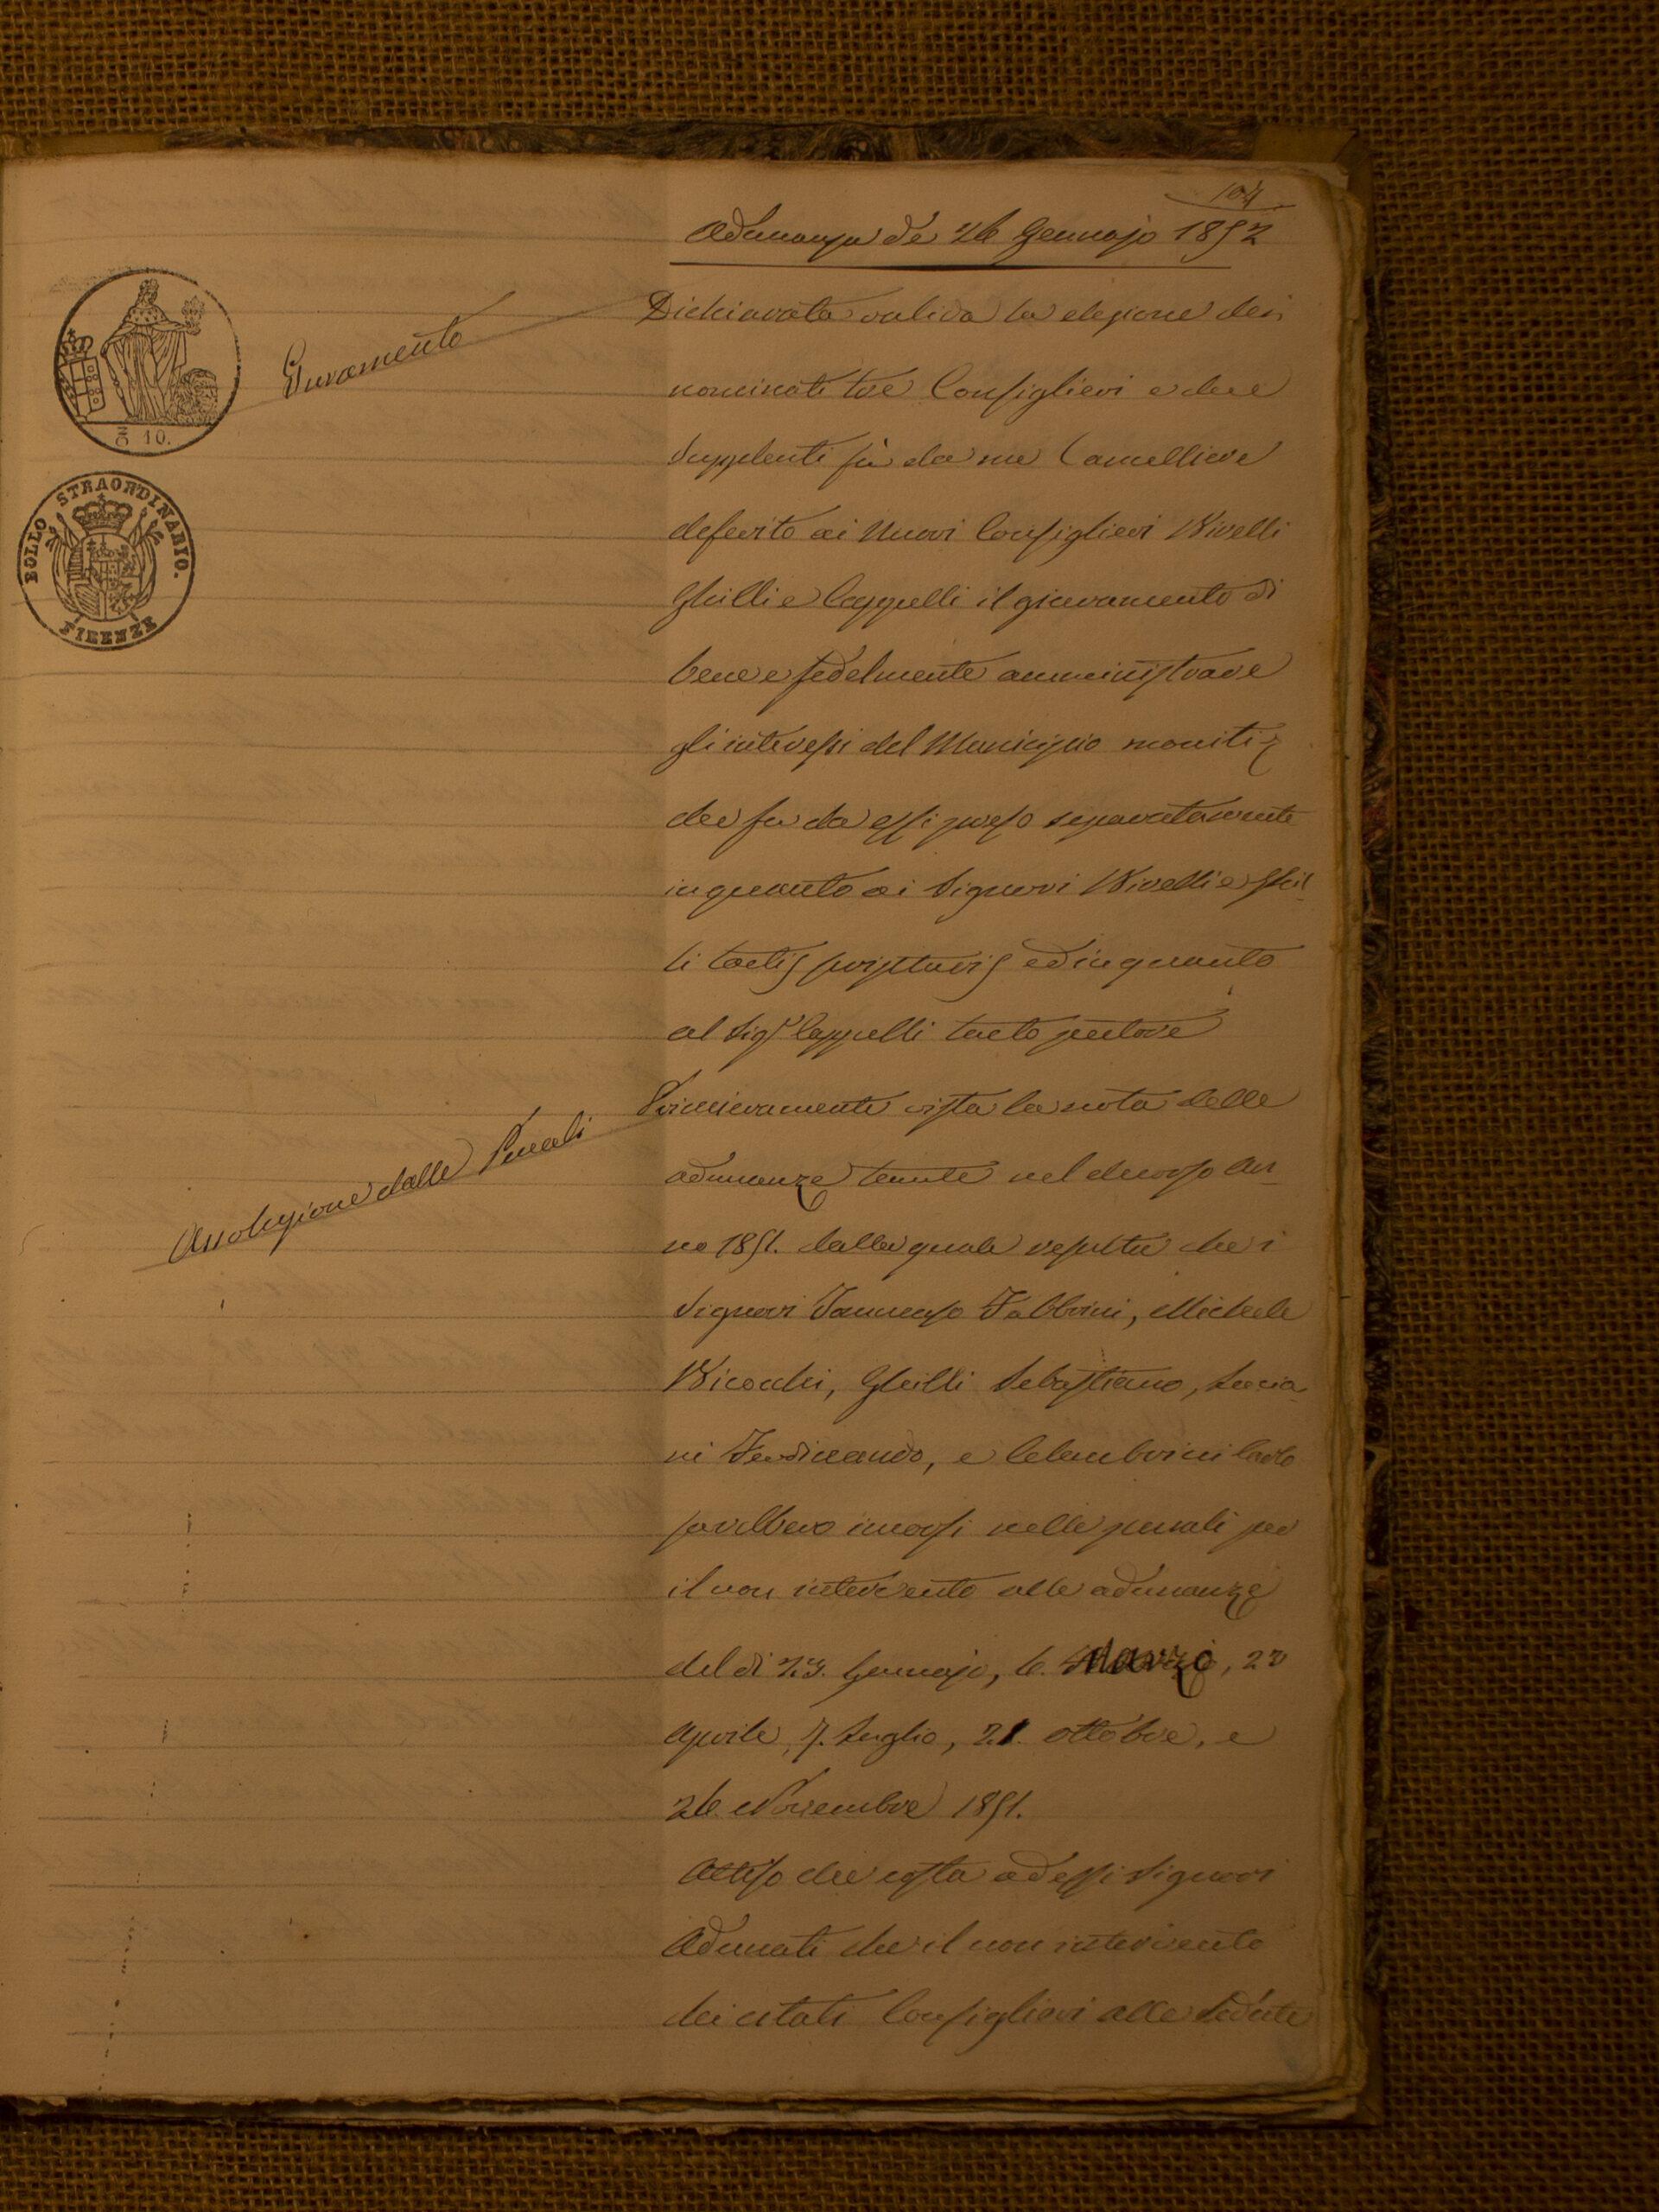 104
Adunanza de 26 Gennajo 1852
Giuramento
Dichiarata valida la elezione dei
nominati tre Consiglieri e due
Supplenti fù da me Cancelliere
deferito ai Nuovi Consiglieri
Ghilli e Cappelli il giuramento di
bene e fedelmente amministrare
gli interessi del Municipio moniti
che fu da essi preso separatamente
in quanto ai Signori e Ghil
li tactis scripturis ed in quanto
al Sigr Cappelli tacto pectore
Assoluzione dalle Penali
Primieramente vista la nota delle
adunanze tenute nel decorso An
no 1851. dalla quale resulta che i
Signori Tommaso Fabbrini, Michele
Ghilli Sebastiano,
ni Ferdinando, e Carlo
sarebbero incorsi nelle penali per
il non intervento alle adunanze
del dì 23. Gennajo, 6. Marzo, 23
Aprile, 7. Luglio, 21. Ottobre, e
26. Novembre 1851.
Atteso che costa ad essi Signori
Adunati che il non intervento
dei citati Consiglieri alle Sedute
10.
BOLLO STRAORDINARIO.
FIRENZE